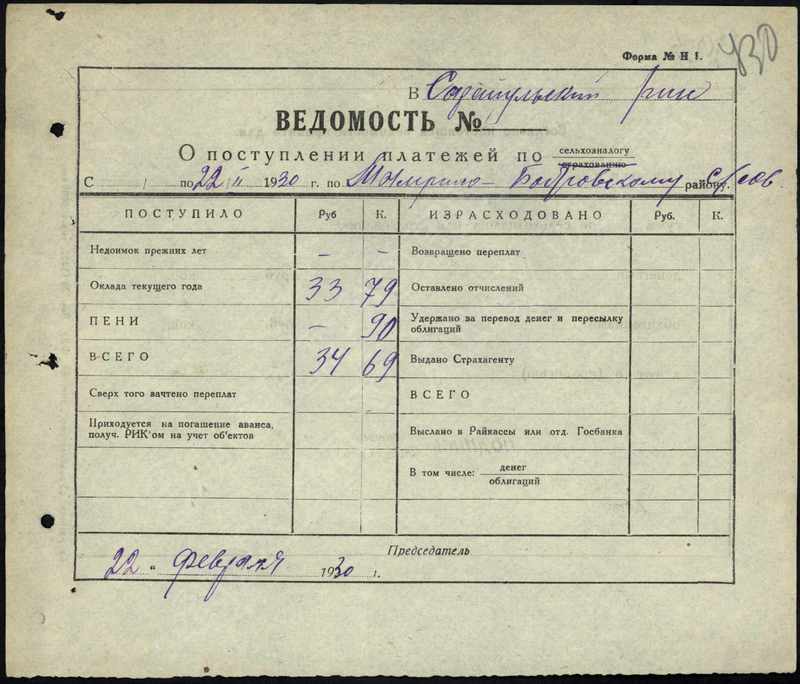 Форма № Н 1.
430
В
ВЕДОМОСТЬ №
О поступлении платежей по сельхозналогу
страхованию
С по 22 II 1930 г. по Бобровскому району.
ПОСТУПИЛО Руб К. ИЗРАСХОДОВАНО Руб. К.
Недоимок прежних лет – – Возвращено переплат
Оклада текущего года 33 79 Оставлено отчислений
ПЕНИ – 90 Удержано за перевод денег и пересылку
облигаций
ВСЕГО 34 69 Выдано Страхагенту
Сверх того зачтено переплат ВСЕГО
Приходуется на погашение аванса, Выслано в Райкассы или отд. Госбанка
получ. РИК'ом на учет об'ектов
В том числе: денег
облигаций
Председатель
22 " февраля 1930 г.